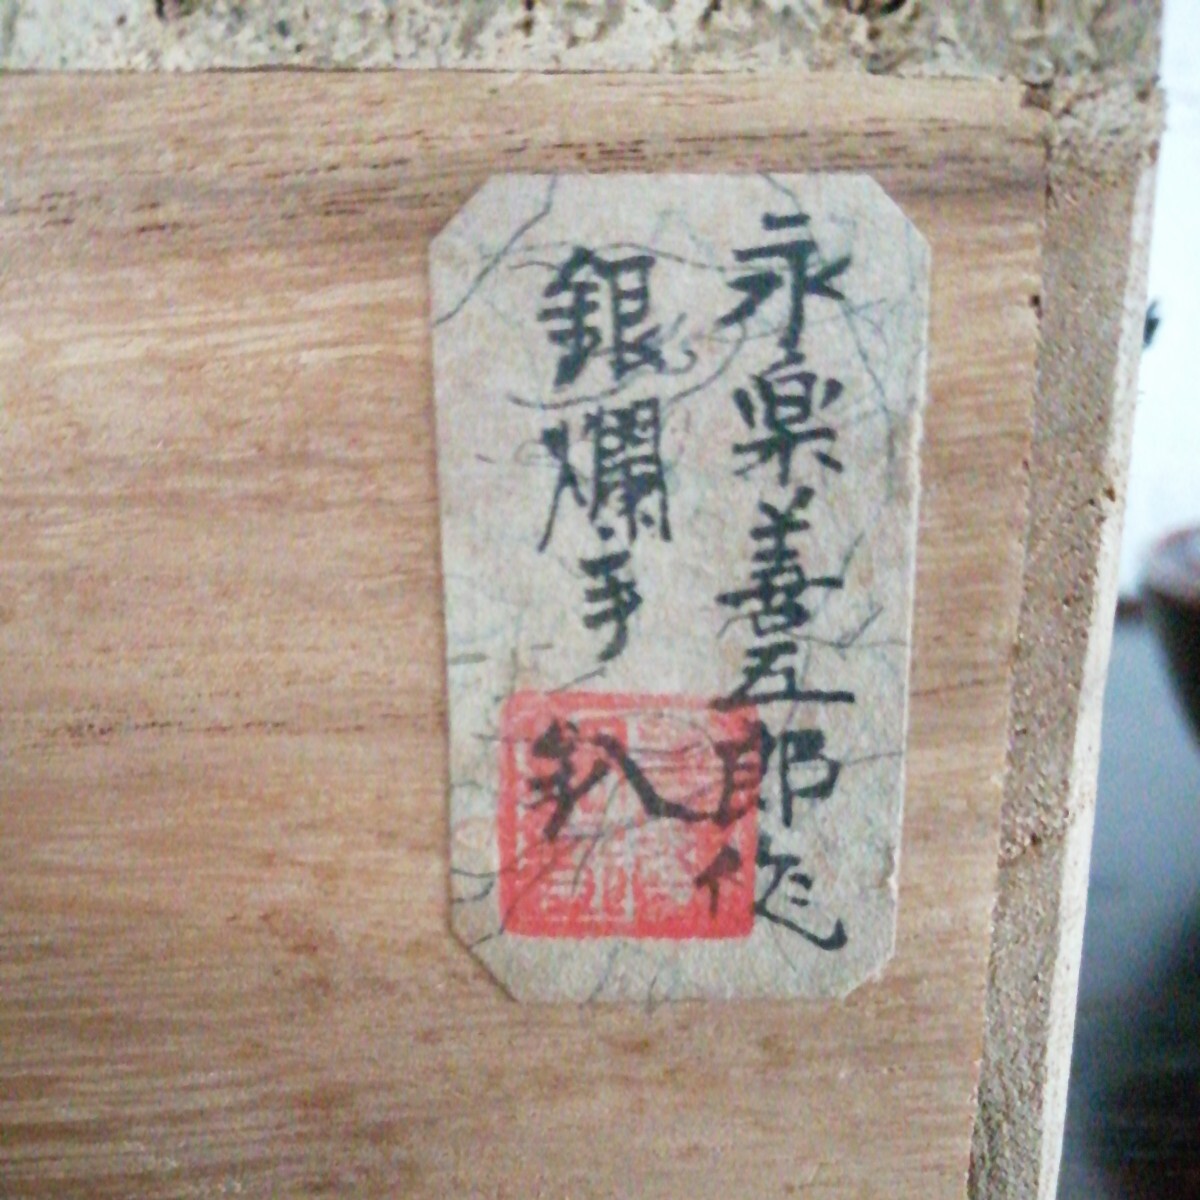 永楽善五郎作
銀爛手
釟